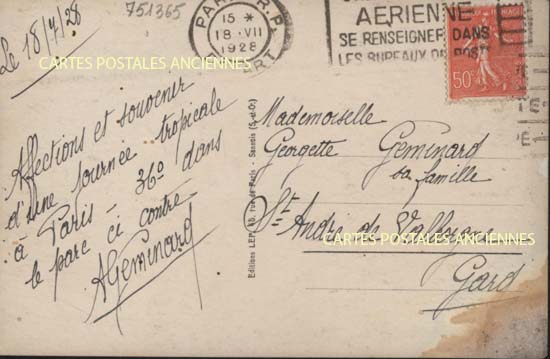 751365
Le 18/7/28
PARIS R.P.
15 *
18 VII
1928
DÉPART
AERIENNE
SE RENSEIGNER DANS
LES BUREAUX DE POSTE
50c
CARTES POSTALES ANCIENNES
Affections et souvenir
d'une journée tropicale
à Paris - 36° dans
le parc ci contre
AGeminard
Editions LEP
Sannois (S.-et-O.)
Mademoiselle
Georgette Géminard
sa famille
St André de Valborgne
CARTES POSTALES ANCIENNES
Gard